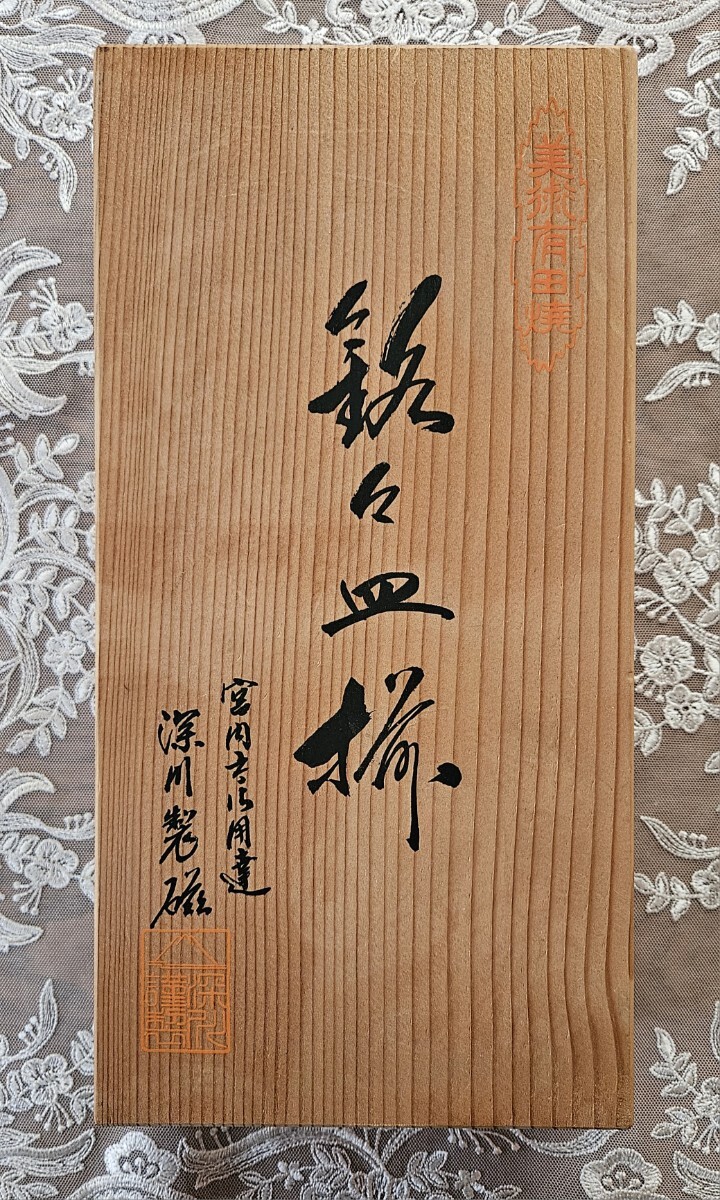 美術有田焼
銘々皿揃
宮内庁御用達
深川製磁
深川
謹製